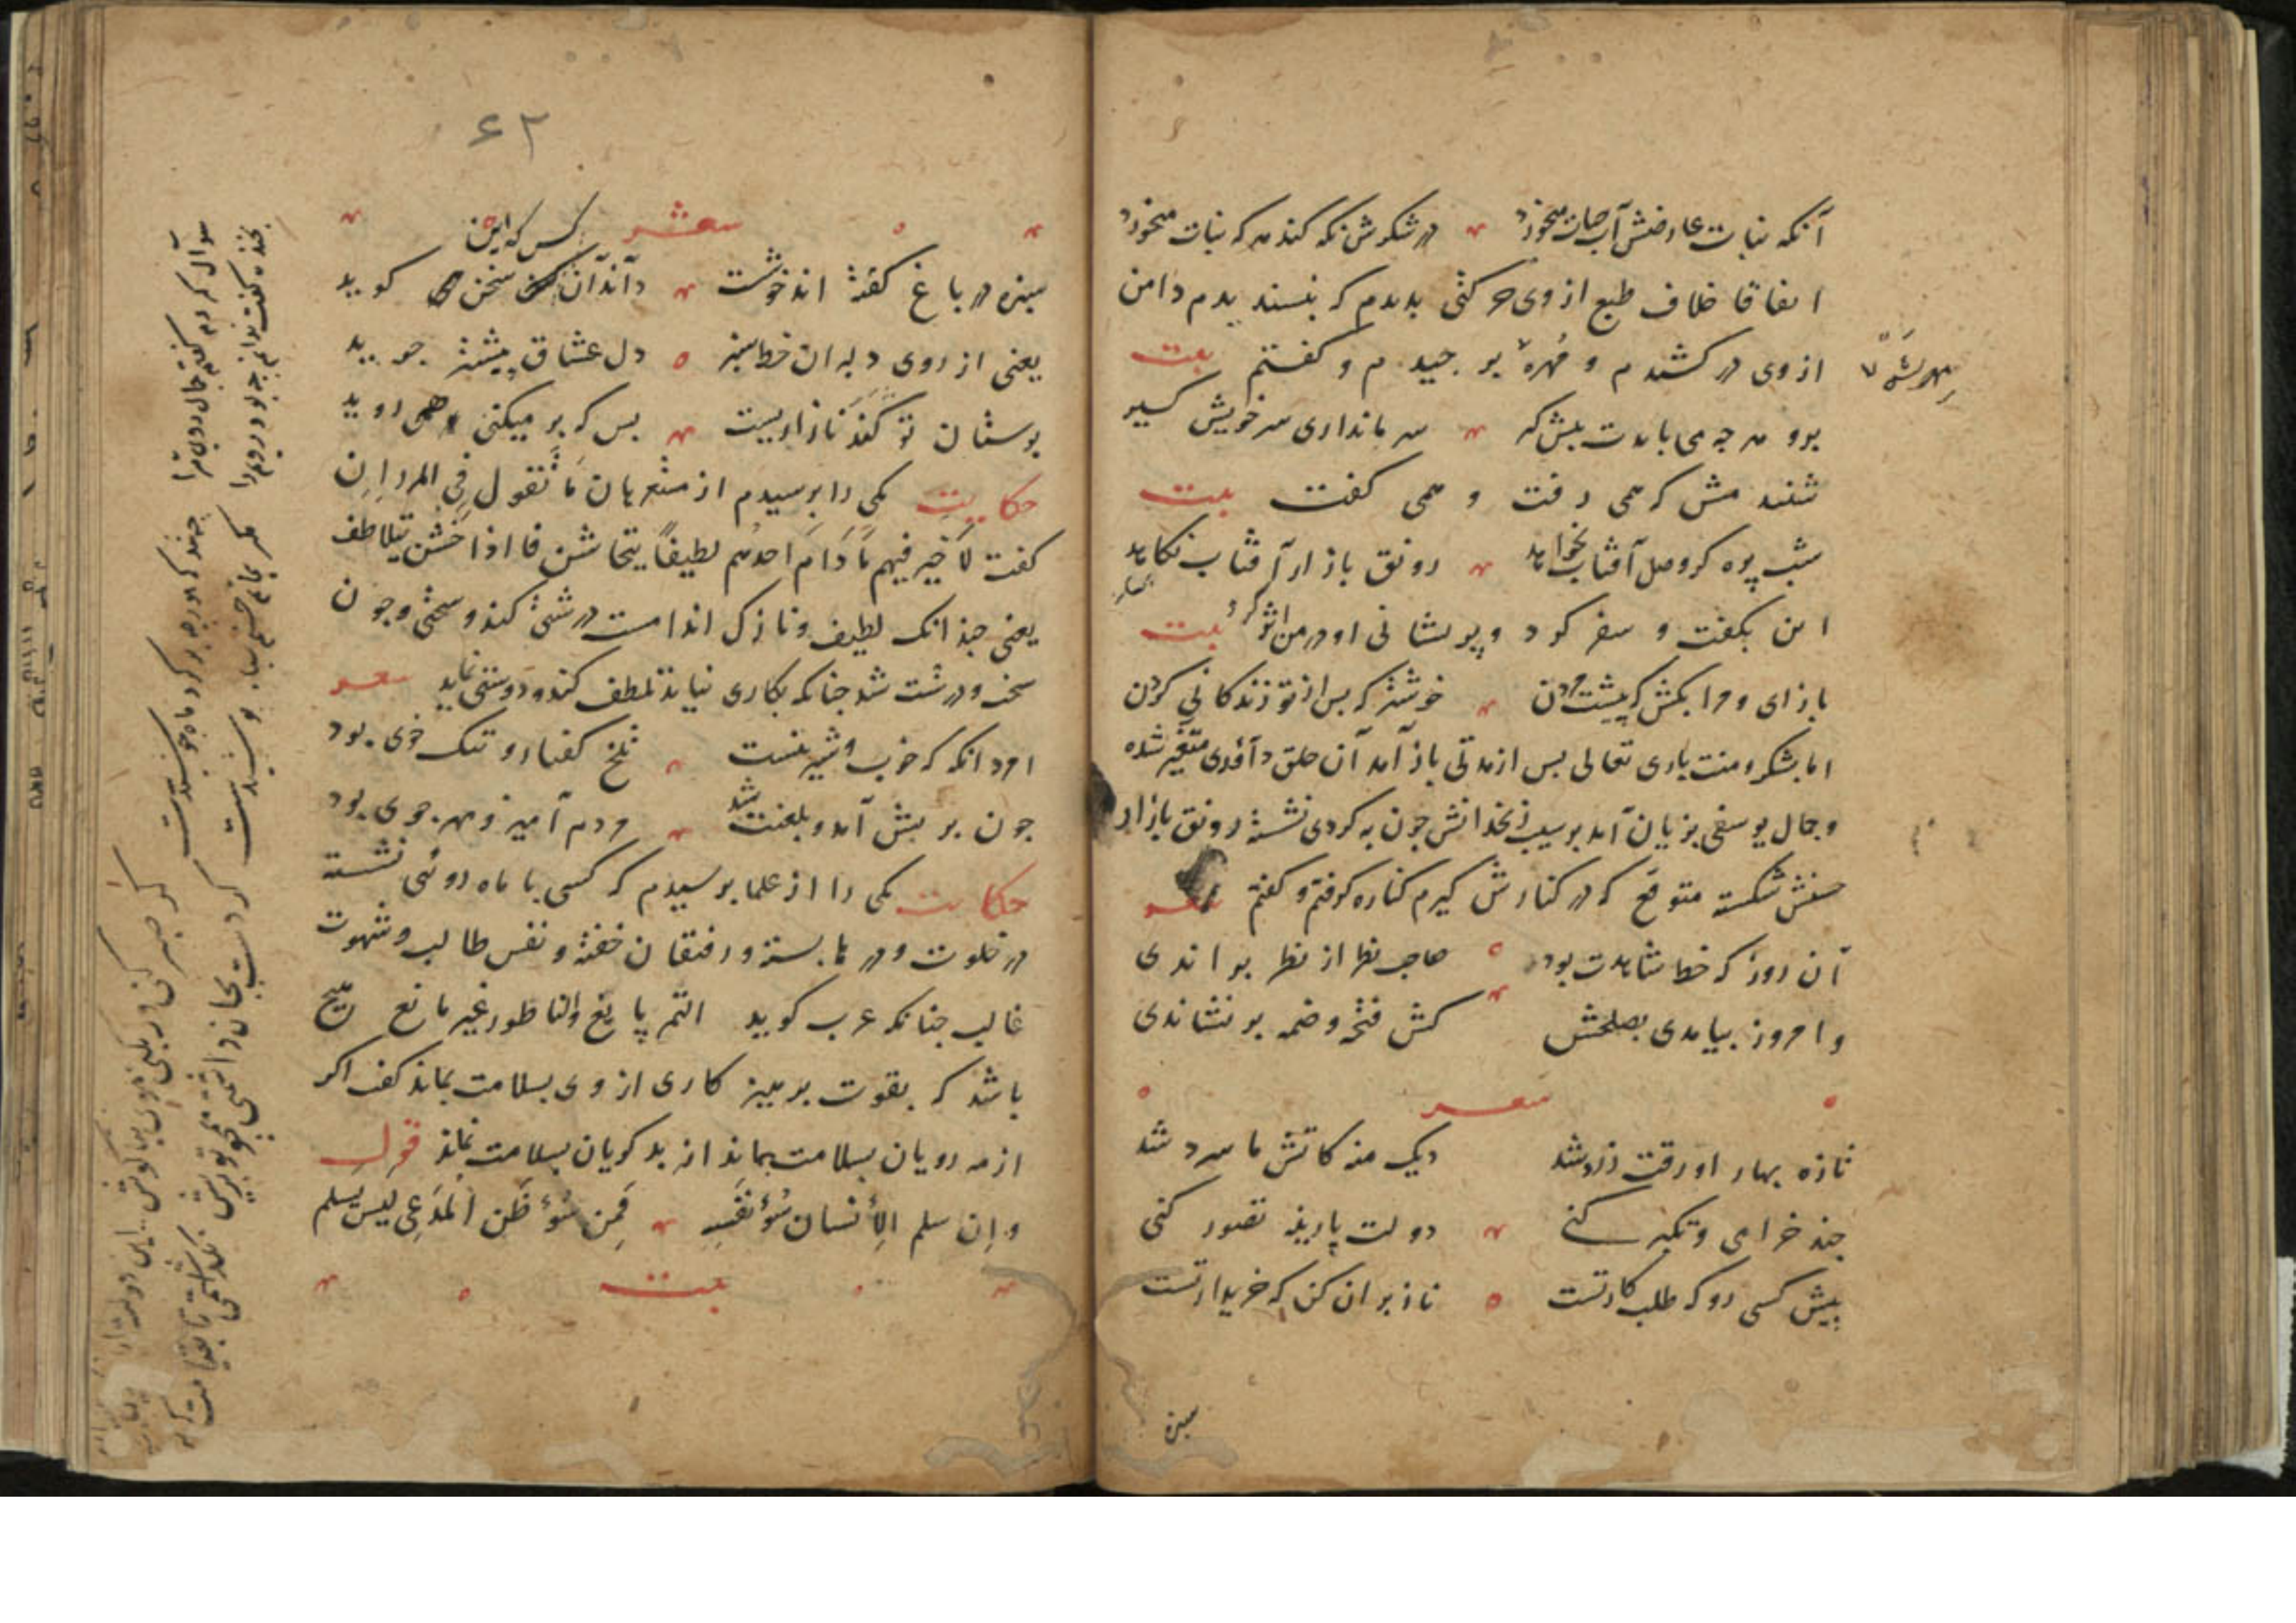 آنکه نبات عارضش آب حیات میخورد در شکرش نکه کند هر که نبات میخورد
اتفاقا خلاف طبع از وی حرکتی بدیدم که نپسندیدم دامن
ازوی درکشیدم و مهره بر چیدم و کفتم بیت
برو هر چه می بایدت پیش کیر سر ما نداری سر خویش کیر
شنیدمش که همی رفت و همی کفت بیت
شب پره کر وصل آفتاب نخواهد رونق بازار آفتاب نکاهد
این بکفت و سفر کرد و پریشانی او در من اثر کرد بیت
باز ای و مرا بکش که پیشت مردن خوشتر که پس از تو زندکانی کردن
اما بشکر و منت باری تعالی پس از مدتی باز آمد آن حلق داودی متغیر شده
و جمال یوسفی بزیان آمد بر سیب زنخدانش چون به کردی نشسته رونق بازار
حسنش شکسته متوقع که در کنارش کیرم کناره کرفتم و کفتم شعر
آن روز که خط شاهدت بود صاحب نظر از نظر براندی
وامروز بیامدی بصلحش کش فتحه و ضمه بر نشاندی
شعر
تازه بهارا ورقت زرد شد دیک منه کاتش ما سرد شد
چند خرامی و تکبر کنی دولت پارینه تصور کنی
پیش کسی رو که طلب کار تست ناز بران کن که خریدار تست
سبزه
۶۲
شعر
سبزه در باغ کفته اند خوشست داند آن کس که این سخن کوید
یعنی از روی دلبران خط سبز دل عشاق بیشتر جوید
بوستان تو کند نازاریست بس که بر میکنی و همی روید
حکایت یکی را پرسیدم از مستعربان ما تقول فی المردان
کفت لا خیر فیهم ما دام احدهم لطیفا یتخاشن فااذا خشن یتلاطف
یعنی چندانک لطیف و نازک اندامست درشتی کند و سختی و چون
سخت و درشت شد چنانکه بکاری نیاید تلطف کند و دوستی نماید شعر
امرد آنکه که خوب و شیرینست تلخ کفتار و تنک خوی بود
چون بریش آمد و بلعنت شد مردم آمیز و مهر جوی بود
حکایت یکی را از علما پرسیدم که کسی با ماه روئی نشسته
در خلوت و درها بسته و رفیقان خفته و نفس طالب و شهوت
غالب چنانکه عرب کوید التمر یانع والناطور غیر مانع هیچ
باشد که بقوت پرهیز کاری از وی بسلامت بماند کفت اکر
از مه رویان بسلامت بماند از بد کویان بسلامت نماند قول
و ان سلم الانسان سوء نفسه فمن سوء ظن المدعی لیس یسلم
بیت
سوال کردم و کفتم جمال روی ترا چه شد که مورچه بر کرد ماه جوشیدست
بخنده کفت ندانم چه بود رویم را مکر بماتم حسنم سیاه پوشیدست
کر صبر کنی ور نکنی موی بناکوش این دولت
کر دست بجان داشتمی همچو تو بر ریش نکذاشتمی تا بقیامت که